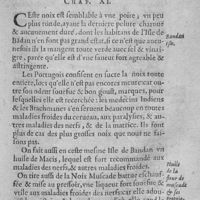 CHAP. XI.
CEste noix est semblable à vne poire, vn peu
plus ronde, ayant la derniere pelure charnuë
& aucunement dure, dont les habitans de l'Isle de
Bādan n'en font pas grand estat, si ce n'est que aucu-
nesfois ils la mangent toute verde auec sel & vinai-
gre, parce qu'elle est d'vne saueur fort agreable &
astringente.
Les Portugois confisent en sucre la noix toute
entiere, lors qu'elle n'est pas encore meure, pour la-
quelle on en recouure, les medecins Indiens
& les Brachmanes s'en seruent pour toutes les
maladies froides du cerueau, aux paralyses, & au-
tres maladies des nerfs, & de la matrice. Ils font
plus de cas de ces noix que nous ne fai-
sons pas.
On fait aussi en ceste mesme Isle de Bandan vn
huile de Macis, lequel est fort recommandé aux
maladies des nerfs, & autres maladies froides.
On tire aussi de la Noix Muscade battue eschauf-
fée, & mise au pressoir, vne liqueur fort souefue &
vtile aux maladies froides des nerfs
Bandan
isle.
Huile
de la
fleur de
muscade
& sa